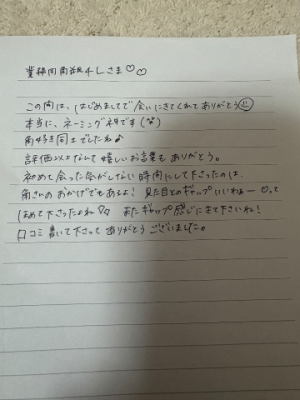 この間は、はじめましてで会いにきてくれてありがとう
本当に、ネーミング神です
角好き同士でしたね♪
評価以上なんて嬉しいお言葉もありがとう。
初めて会った気がしない時間にして下さったのは、
角さんのおかげでもあるよ! 見た目とのギャップいいわぁー♡って
ほめて下さったよね またギャップ感じにきて下さいね!
口コミ書いて下さって ありがとうございました。